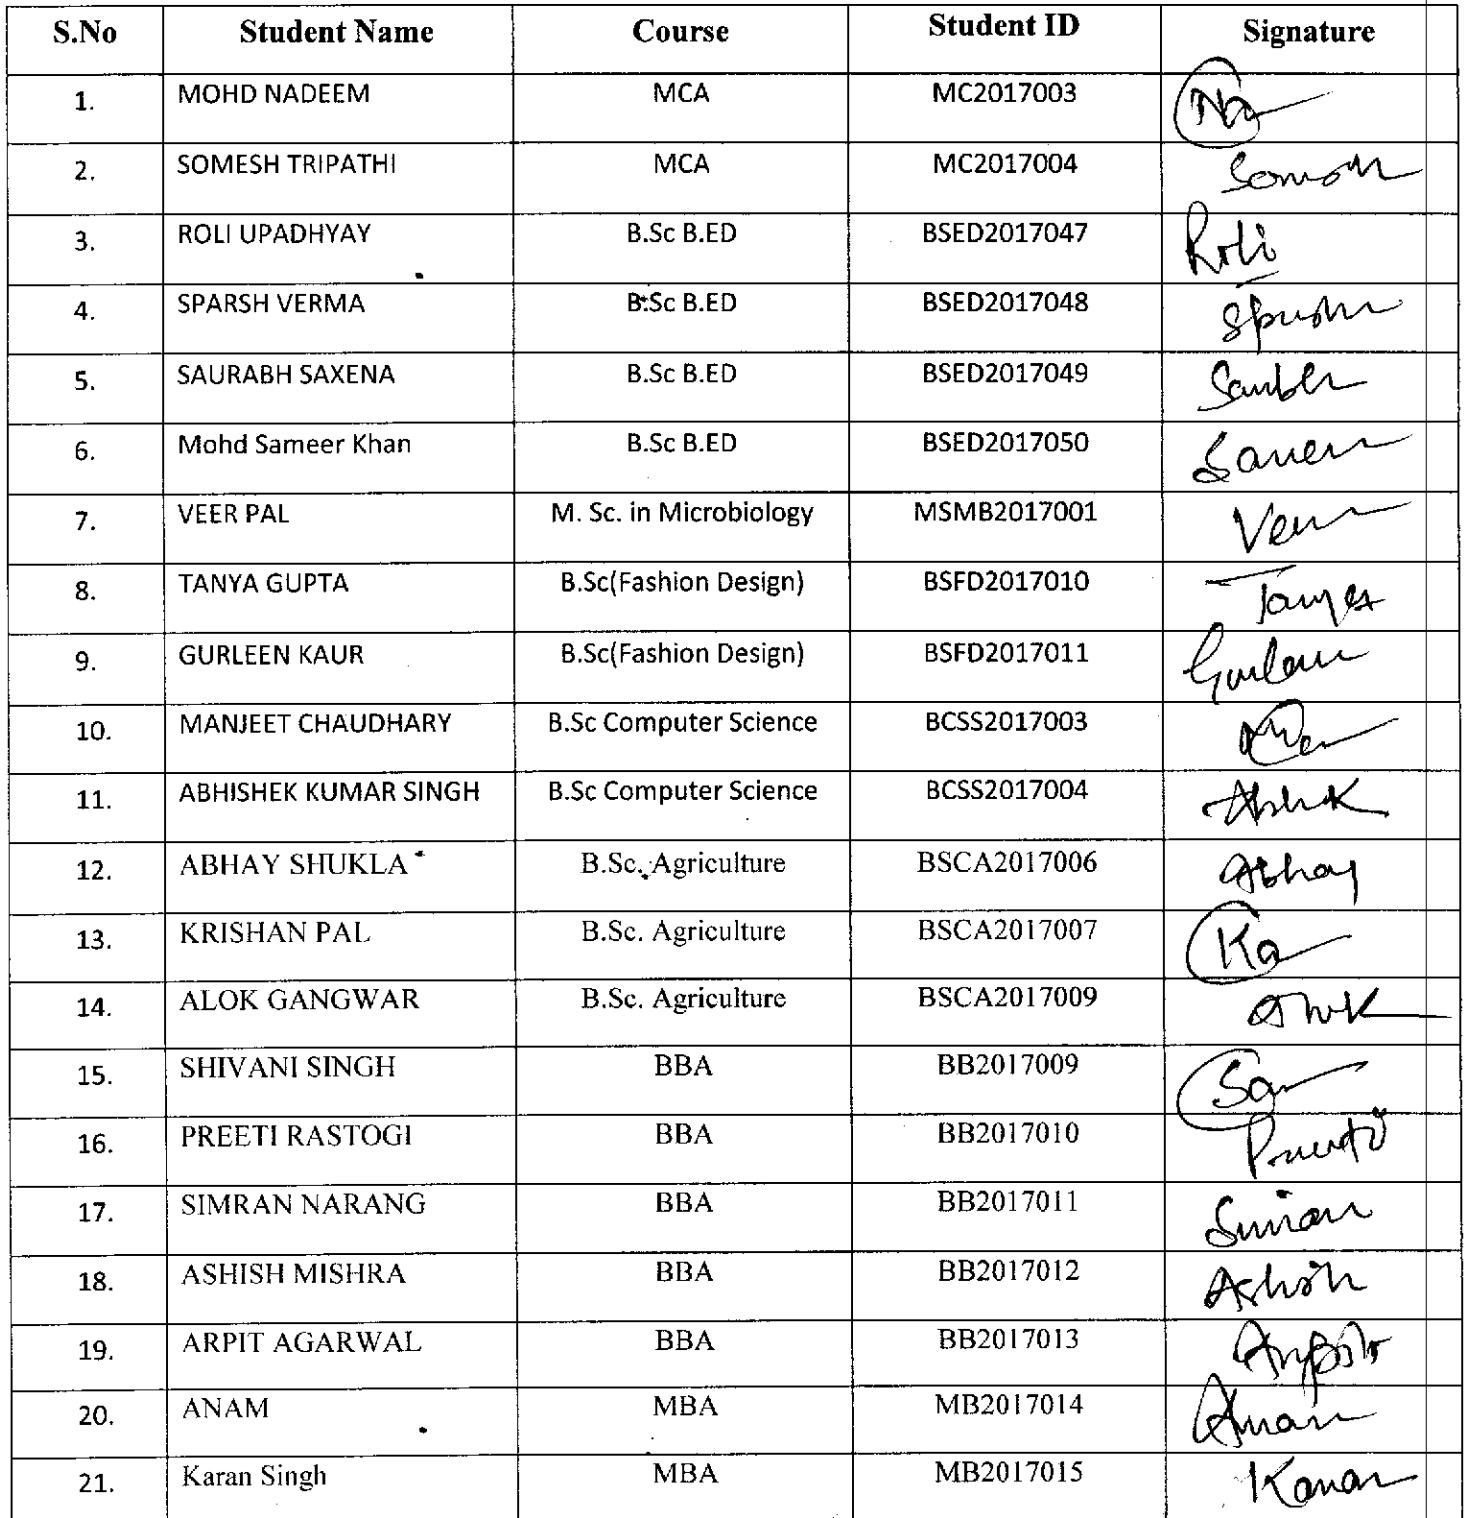 S.No Student Name Course Student ID Signature
1. MOHD NADEEM MCA MC2017003
2. SOMESH TRIPATHI MCA MC2017004
3. ROLI UPADHYAY B.Sc B.ED BSED2017047 Roli
4. SPARSH VERMA B.Sc B.ED BSED2017048
5. SAURABH SAXENA B.Sc B.ED BSED2017049
6. Mohd Sameer Khan B.Sc B.ED BSED2017050
7. VEER PAL M. Sc. in Microbiology MSMB2017001
8. TANYA GUPTA B.Sc(Fashion Design) BSFD2017010 Tanya
9. GURLEEN KAUR B.Sc(Fashion Design) BSFD2017011
10. MANJEET CHAUDHARY B.Sc Computer Science BCSS2017003
11. ABHISHEK KUMAR SINGH B.Sc Computer Science BCSS2017004
12. ABHAY SHUKLA B.Sc. Agriculture BSCA2017006 Abhay
13. KRISHAN PAL B.Sc. Agriculture BSCA2017007
14. ALOK GANGWAR B.Sc. Agriculture BSCA2017009
15. SHIVANI SINGH BBA BB2017009
16. PREETI RASTOGI BBA BB2017010
17. SIMRAN NARANG BBA BB2017011
18. ASHISH MISHRA BBA BB2017012
19. ARPIT AGARWAL BBA BB2017013
20. ANAM MBA MB2017014
21. Karan Singh MBA MB2017015